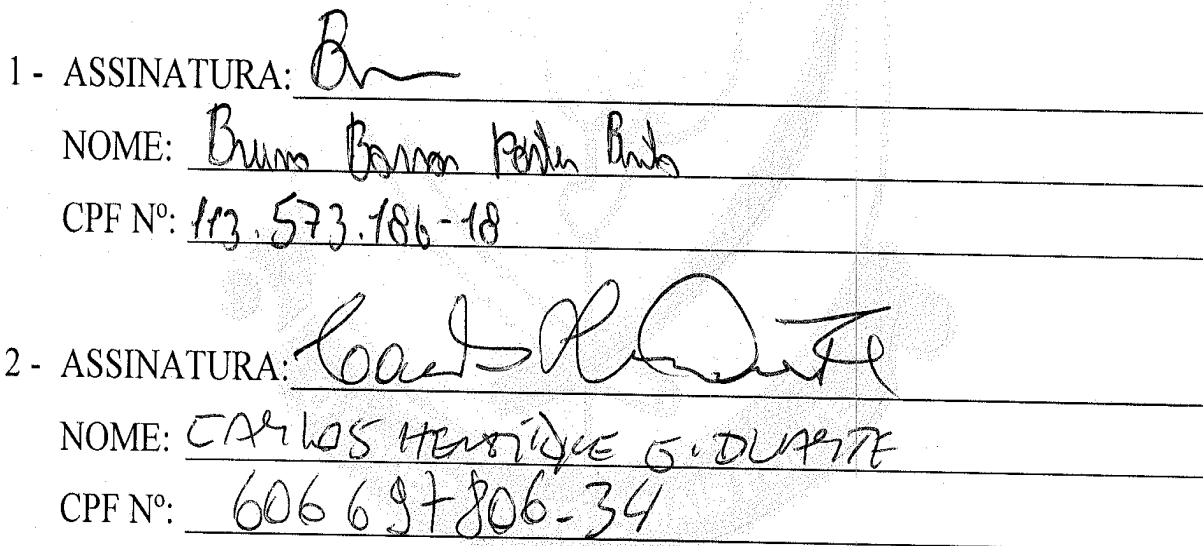 1 - ASSINATURA:
NOME: Bruno Barros
CPF Nº: 113.573.186-18
2 - ASSINATURA:
NOME: CARLOS HENRIQUE G. DUARTE
CPF Nº: 606 697806-34